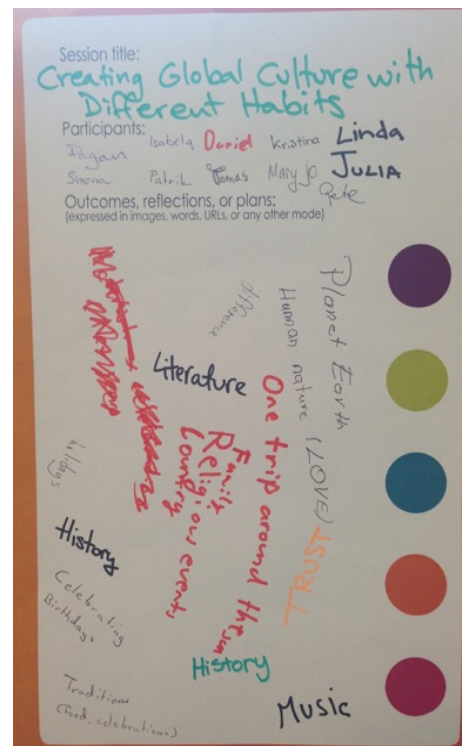 Session title:
Creating Global Culture with
Different Habits
Participants:
Dagan Isabela Daniel Kristina Linda
Simona Patrik Tomas Mary Jo JULIA
Pete
Outcomes, reflections, or plans:
(expressed in images, words, URLs, or any other mode)
Planet Earth
Human nature (LOVE)
difference
Literature
One trip around the sun
Family
Religious events
Country
TRUST
holidays
History
Celebrating
Birthdays
History
Traditions
(food, celebrations)
Music